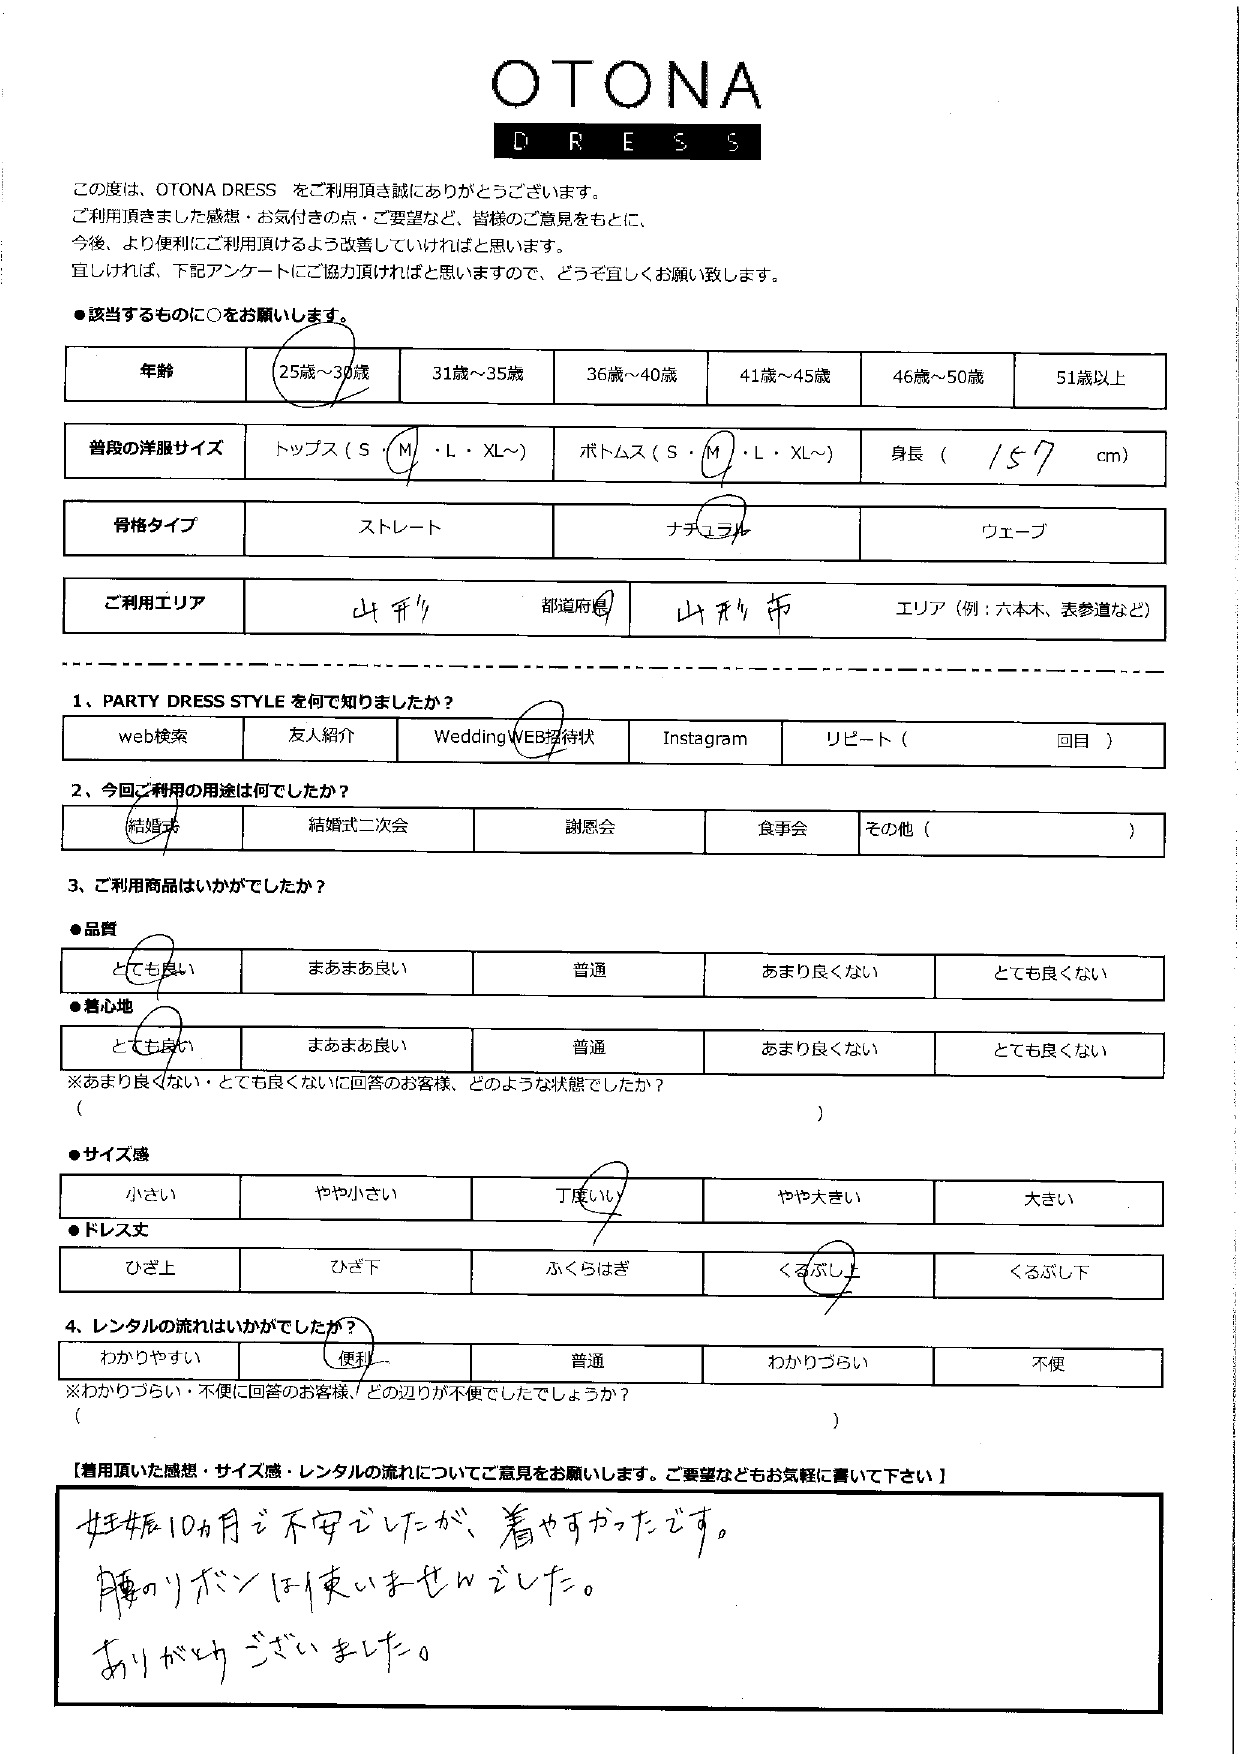 OTONA
DRESS
この度は、OTONA DRESS をご利用頂き誠にありがとうございます。
ご利用頂きました感想・お気付きの点・ご要望など、皆様のご意見をもとに、
今後、より便利にご利用頂けるよう改善していければと思います。
宜しければ、下記アンケートにご協力頂ければと思いますので、どうぞ宜しくお願い致します。
●該当するものに○をお願いします。
年齢 25歳～30歳 31歳～35歳 36歳～40歳 41歳～45歳 46歳～50歳 51歳以上
普段の洋服サイズ トップス（ S ・ M ・ L ・ XL～） ボトムス（ S ・ M ・ L ・ XL～） 身長 （ 157 cm）
骨格タイプ ストレート ナチュラル ウェーブ
ご利用エリア 山形 都道府県 山形市 エリア（例：六本木、表参道など）
1、PARTY DRESS STYLE を何で知りましたか？
web検索 友人紹介 WeddingWEB招待状 Instagram リピート（ 回目 ）
2、今回ご利用の用途は何でしたか？
結婚式 結婚式二次会 謝恩会 食事会 その他（ ）
3、ご利用商品はいかがでしたか？
●品質
とても良い まあまあ良い 普通 あまり良くない とても良くない
●着心地
とても良い まあまあ良い 普通 あまり良くない とても良くない
※あまり良くない・とても良くないに回答のお客様、どのような状態でしたか？
（ ）
●サイズ感
小さい やや小さい 丁度いい やや大きい 大きい
●ドレス丈
ひざ上 ひざ下 ふくらはぎ くるぶし上 くるぶし下
4、レンタルの流れはいかがでしたか？
わかりやすい 便利 普通 わかりづらい 不便
※わかりづらい・不便に回答のお客様、どの辺りが不便でしたでしょうか？
（ ）
【着用頂いた感想・サイズ感・レンタルの流れについてご意見をお願いします。ご要望などもお気軽に書いて下さい】
妊娠10ヵ月で不安でしたが、着やすかったです。
腰のリボンは使いませんでした。
ありがとうございました。